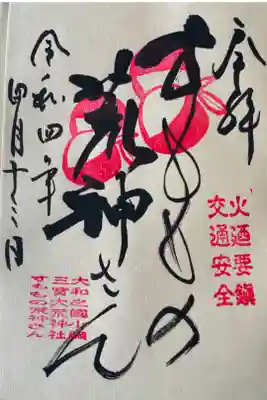 奉拝
火廼要鎮
交通安全
すももの
荒神さん
大和之國小綱
三寳大荒神社
すももの荒神さん
令和四年
四月十三日